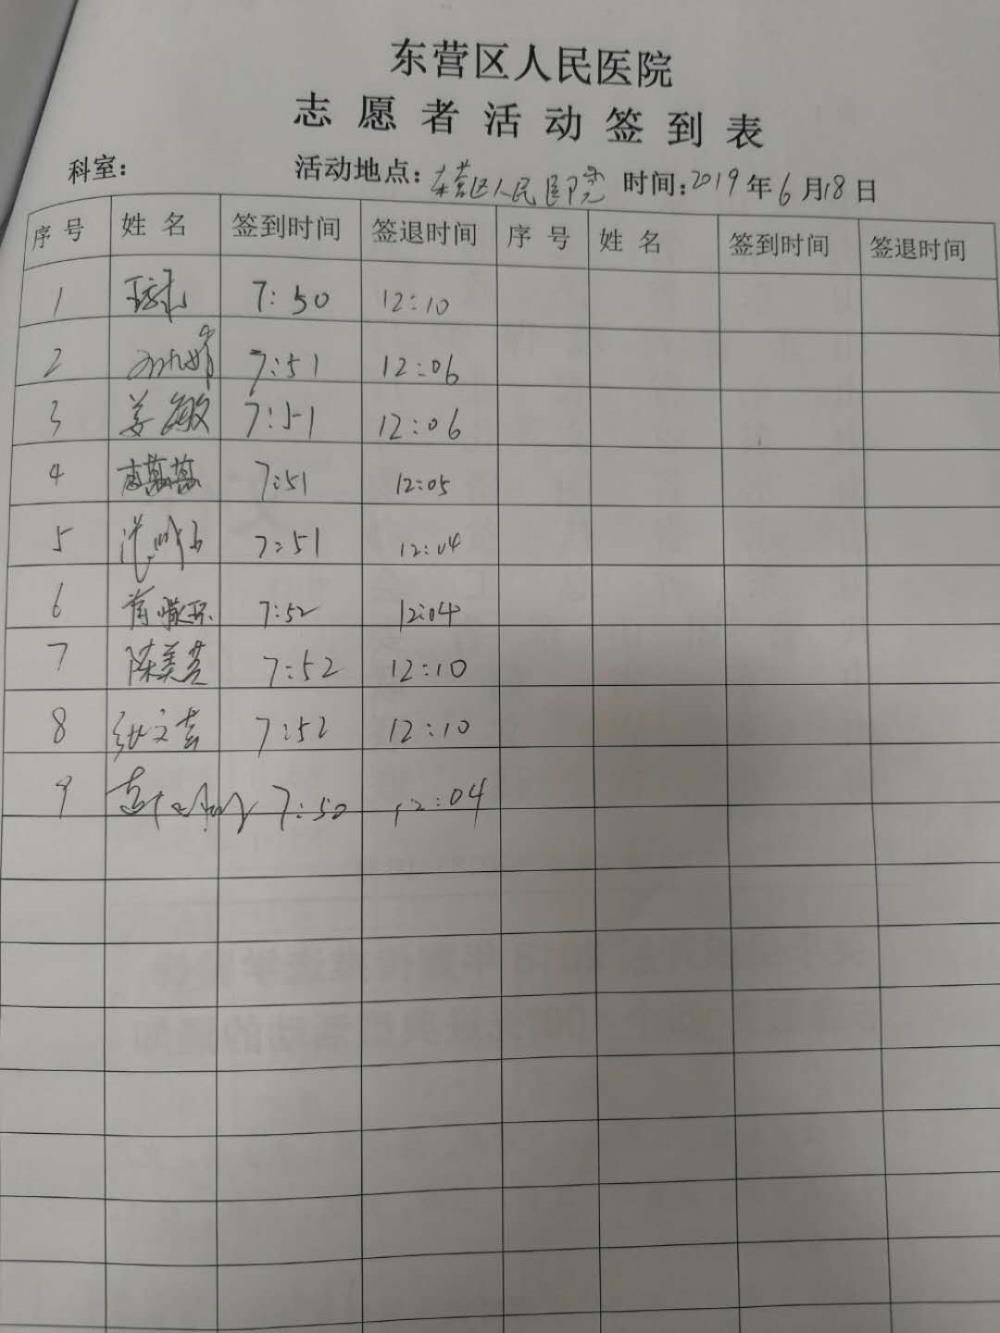 东营区人民医院
志愿者活动签到表
科室： 活动地点：东营区人民医院 时间：2019年6月18日
序号 姓名 签到时间 签退时间 序号 姓名 签到时间 签退时间
1 7:50 12:10
2 7:51 12:06
3 姜敏 7:51 12:06
4 7:51 12:05
5 7:51 12:04
6 7:52 12:04
7 陈美芸 7:52 12:10
8 张文 7:52 12:10
9 7:50 12:04